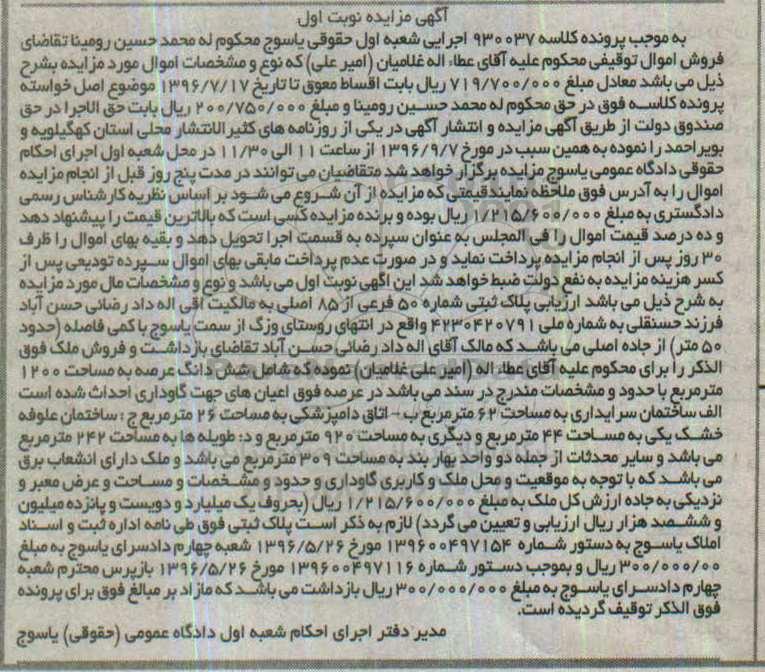 آگهی مزایده نوبت اول
به موجب پرونده کلاسه ۹۳۰۰۳۷ اجرایی شعبه اول حقوقی یاسوج محکوم له محمد حسین رومینا تقاضای
فروش اموال توقیفی محکوم علیه آقای عطاء اله غلامیان (امیر علی) که نوع و مشخصات اموال مورد مزایده بشرح
ذیل می باشد معادل مبلغ ۷۱۹/۷۰۰/۰۰۰ ریال بابت اقساط معوق تا تاریخ ۱۳۹۶/۷/۱۷ موضوع اصل خواسته
پرونده کلاسه فوق در حق محکوم له محمد حسین رومینا و مبلغ ۲۰۰/۷۵۰/۰۰۰ ریال بابت حق الاجرا در حق
صندوق دولت از طریق آگهی مزایده و انتشار آگهی در یکی از روزنامه های کثیرالانتشار محلی استان کهگیلویه و
بویراحمد را نموده به همین سبب در مورخ ۱۳۹۶/۹/۷ از ساعت ۱۱ الی ۱۱/۳۰ در محل شعبه اول اجرای احکام
حقوقی دادگاه عمومی یاسوج مزایده برگزار خواهد شد متقاضیان می توانند در مدت پنج روز قبل از انجام مزایده
اموال را به آدرس فوق ملاحظه نمایند قیمتی که مزایده از آن شروع می شود بر اساس نظریه کارشناس رسمی
دادگستری به مبلغ ۱/۲۱۵/۶۰۰/۰۰۰ ریال بوده و برنده مزایده کسی است که بالاترین قیمت را پیشنهاد دهد
و ده درصد قیمت اموال را فی المجلس به عنوان سپرده به قسمت اجرا تحویل دهد و بقیه بهای اموال را ظرف
۳۰ روز پس از انجام مزایده پرداخت نماید و در صورت عدم پرداخت مابقی بهای اموال سپرده تودیعی پس از
کسر هزینه مزایده به نفع دولت ضبط خواهد شد این اگهی نوبت اول می باشد و نوع و مشخصات مال مورد مزایده
به شرح ذیل می باشد ارزیابی پلاک ثبتی شماره ۵۰ فرعی از ۸۵ اصلی به مالکیت اقی اله داد رضائی حسن آباد
فرزند حسنقلی به شماره ملی ۴۲۳۰۴۲۰۷۹۱ واقع در انتهای روستای وزگ از سمت یاسوج با کمی فاصله (حدود
۵۰ متر) از جاده اصلی می باشد که مالک آقای اله داد رضائی حسن آباد تقاضای بازداشت و فروش ملک فوق
الذکر را برای محکوم علیه آقای عطاء اله (امیر علی غلامیان) نموده که شامل شش دانگ عرصه به مساحت ۱۲۰۰
مترمربع با حدود و مشخصات مندرج در سند می باشد در عرصه فوق اعیان های جهت گاوداری احداث شده است
الف ساختمان سرایداری به مساحت ۶۲ مترمربع ب - اتاق دامپزشکی به مساحت ۲۶ مترمربع ج : ساختمان علوفه
خشک یکی به مساحت ۴۴ مترمربع و دیگری به مساحت ۹۲۰ مترمربع و د: طویله ها به مساحت ۲۴۲ مترمربع
می باشد و سایر محدثات از جمله دو واحد بهار بند به مساحت ۳۰۹ مترمربع می باشد و ملک دارای انشعاب برق
می باشد که با توجه به موقعیت و محل ملک و کاربری گاوداری و حدود و مشخصات و مساحت و عرض معبر و
نزدیکی به جاده ارزش کل ملک به مبلغ ۱/۲۱۵/۶۰۰/۰۰۰ ریال (بحروف یک میلیارد و دویست و پانزده میلیون
و ششصد هزار ریال ارزیابی و تعیین می گردد) لازم به ذکر است پلاک ثبتی فوق طی نامه اداره ثبت و اسناد
املاک یاسوج به دستور شماره ۱۳۹۶۰۰۴۹۷۱۵۴ مورخ ۱۳۹۶/۵/۲۶ شعبه چهارم دادسرای یاسوج به مبلغ
۳۰۰/۰۰۰/۰۰ ریال و بموجب دستور شماره ۱۳۹۶۰۰۴۹۷۱۱۶ مورخ ۱۳۹۶/۵/۲۶ بازپرس محترم شعبه
چهارم دادسرای یاسوج به مبلغ ۳۰۰/۰۰۰/۰۰۰ ریال بازداشت می باشد که مازاد بر مبالغ فوق برای پرونده
فوق الذکر توقیف گردیده است.
مدیر دفتر اجرای احکام شعبه اول دادگاه عمومی (حقوقی) یاسوج